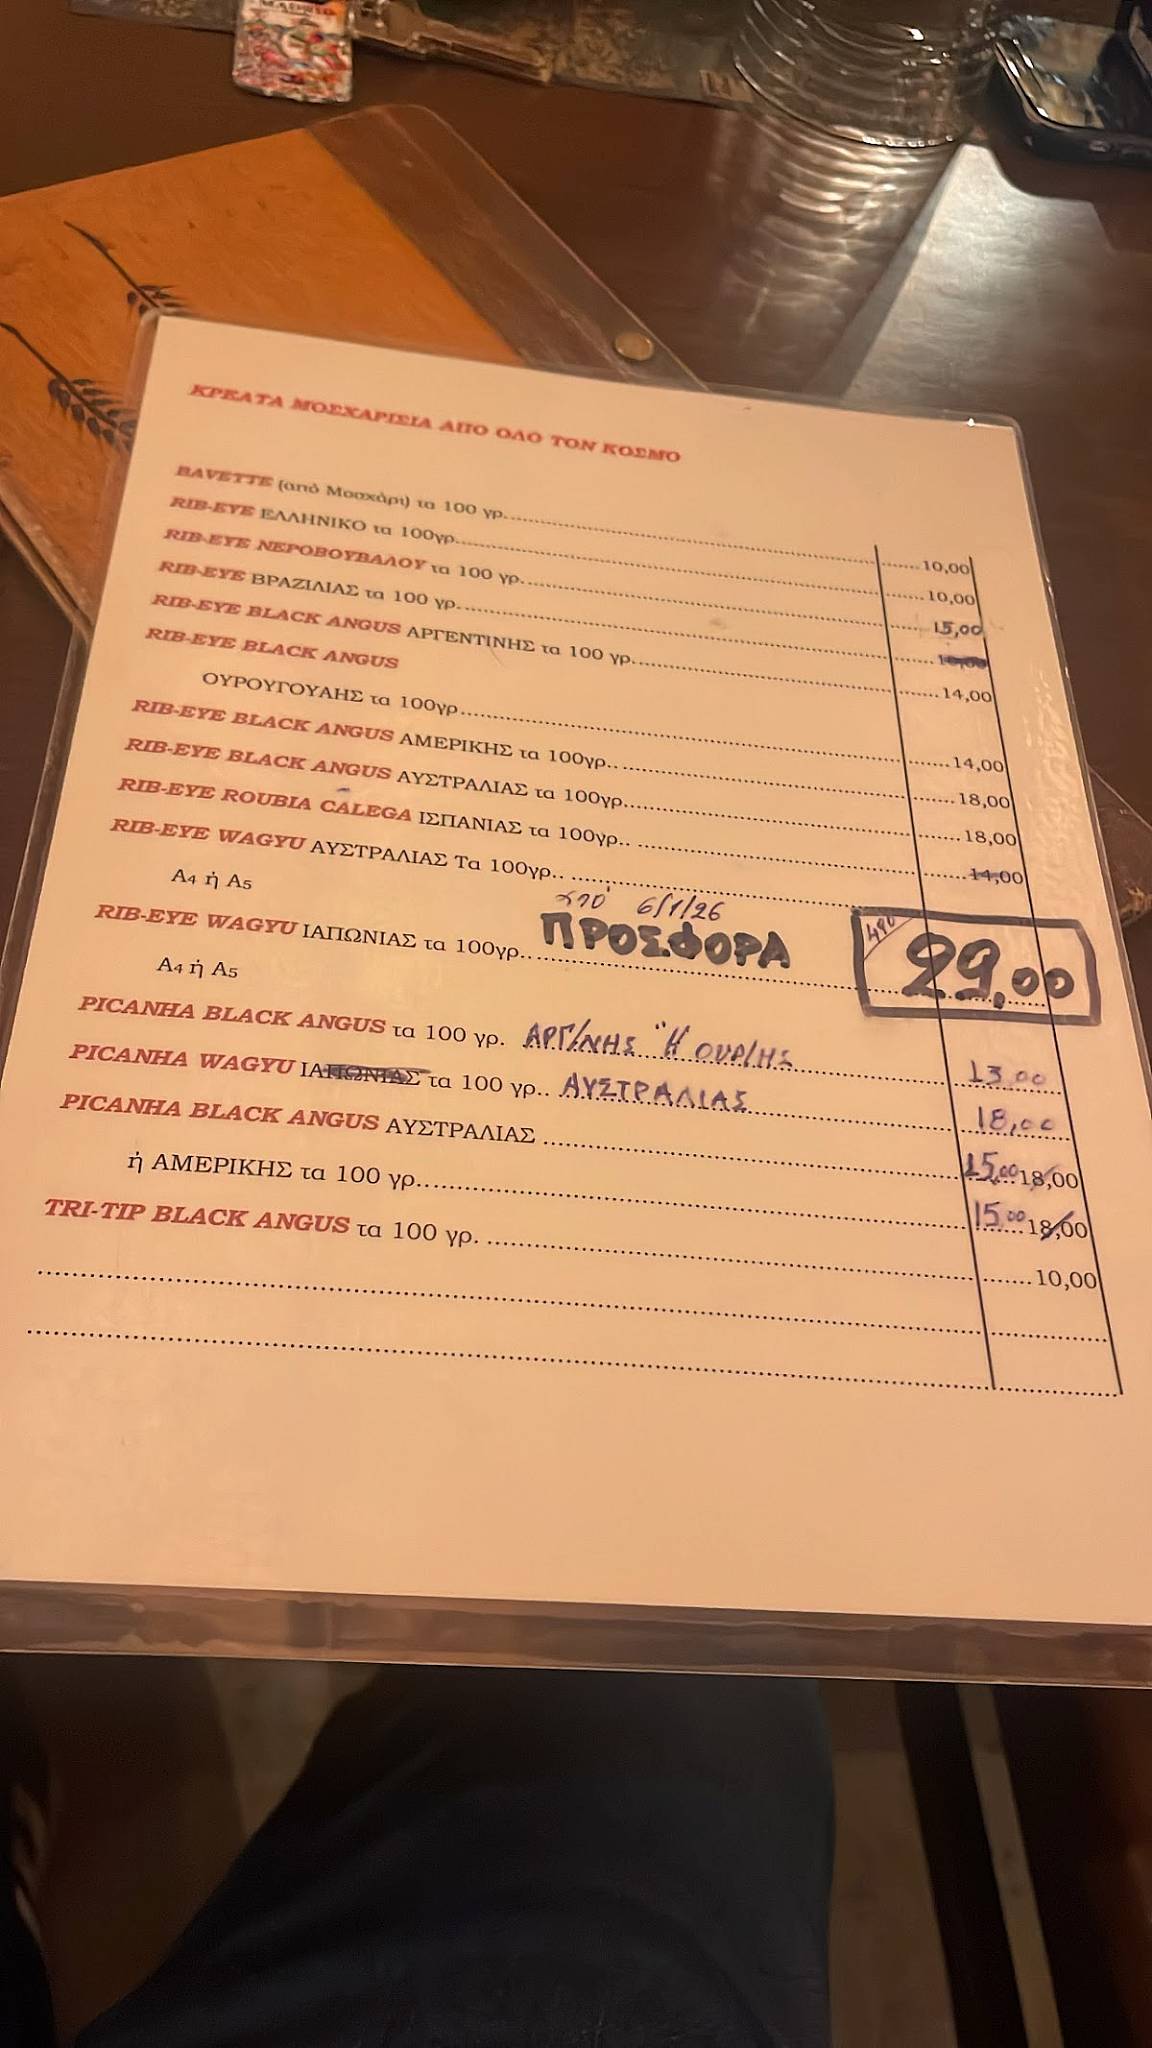 MADRID
ΚΡΕΑΤΑ ΜΟΣΧΑΡΙΣΙΑ ΑΠΟ ΟΛΟ ΤΟΝ ΚΟΣΜΟ
BAVETTE (από Μοσχάρι) τα 100 γρ. 10,00
RIB-EYE ΕΛΛΗΝΙΚΟ τα 100γρ. 10,00
RIB-EYE ΝΕΡΟΒΟΥΒΑΛΟΥ τα 100 γρ. 15,00
RIB-EYE ΒΡΑΖΙΛΙΑΣ τα 100 γρ.
RIB-EYE BLACK ANGUS ΑΡΓΕΝΤΙΝΗΣ τα 100 γρ. 14,00
RIB-EYE BLACK ANGUS
ΟΥΡΟΥΓΟΥΑΗΣ τα 100γρ. 14,00
RIB-EYE BLACK ANGUS ΑΜΕΡΙΚΗΣ τα 100γρ. 18,00
RIB-EYE BLACK ANGUS ΑΥΣΤΡΑΛΙΑΣ τα 100γρ. 18,00
RIB-EYE ROUBIA CALEGA ΙΣΠΑΝΙΑΣ τα 100γρ.. 14,00
RIB-EYE WAGYU ΑΥΣΤΡΑΛΙΑΣ Τα 100γρ..
Α4 ή Α5 6/1/26
RIB-EYE WAGYU ΙΑΠΩΝΙΑΣ τα 100γρ.. ΠΡΟΣΦΟΡΑ 29,00
Α4 ή Α5
PICANHA BLACK ANGUS τα 100 γρ. ΑΡΓ/ΝΗΣ "Η ΟΥΡ/ΗΣ 13,00
PICANHA WAGYU ΙΑΠΩΝΙΑΣ τα 100 γρ.. ΑΥΣΤΡΑΛΙΑΣ 18,00
PICANHA BLACK ANGUS ΑΥΣΤΡΑΛΙΑΣ 15,00 18,00
ή ΑΜΕΡΙΚΗΣ τα 100 γρ. 15,00 18,00
TRI-TIP BLACK ANGUS τα 100 γρ. 10,00